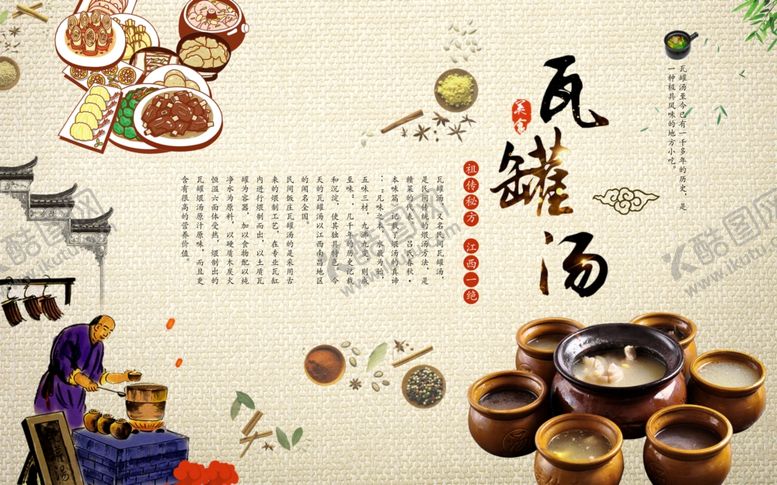 瓦罐汤至今已有一千多年的历史，是
一种极具风味的地方小吃。
瓦罐汤
美食
祖传秘方
江西一绝
瓦罐汤，又名民间瓦罐汤，
是民间传统的煨汤方法，是
赣菜的代表。《吕氏春秋·
本味篇》记载了煨汤的真谛
：“凡味之本，水最为始，
五味三材，九沸九变，则成
至味”。几千年的历史记载
和沉淀，使其独具特色，今
天的瓦罐汤以江西南昌地区
的闻名全国。
民间饭瓦罐汤的是采用古
来的煨制工艺，在专业瓦缸
内进行煨制而出，以土质瓦
罐为容器，加以食物配以纯
净水为原料，以硬质木炭火
恒温六面体受热，煨制出的
瓦罐煨汤原汁原味，而且更
含有很高的营养价值。